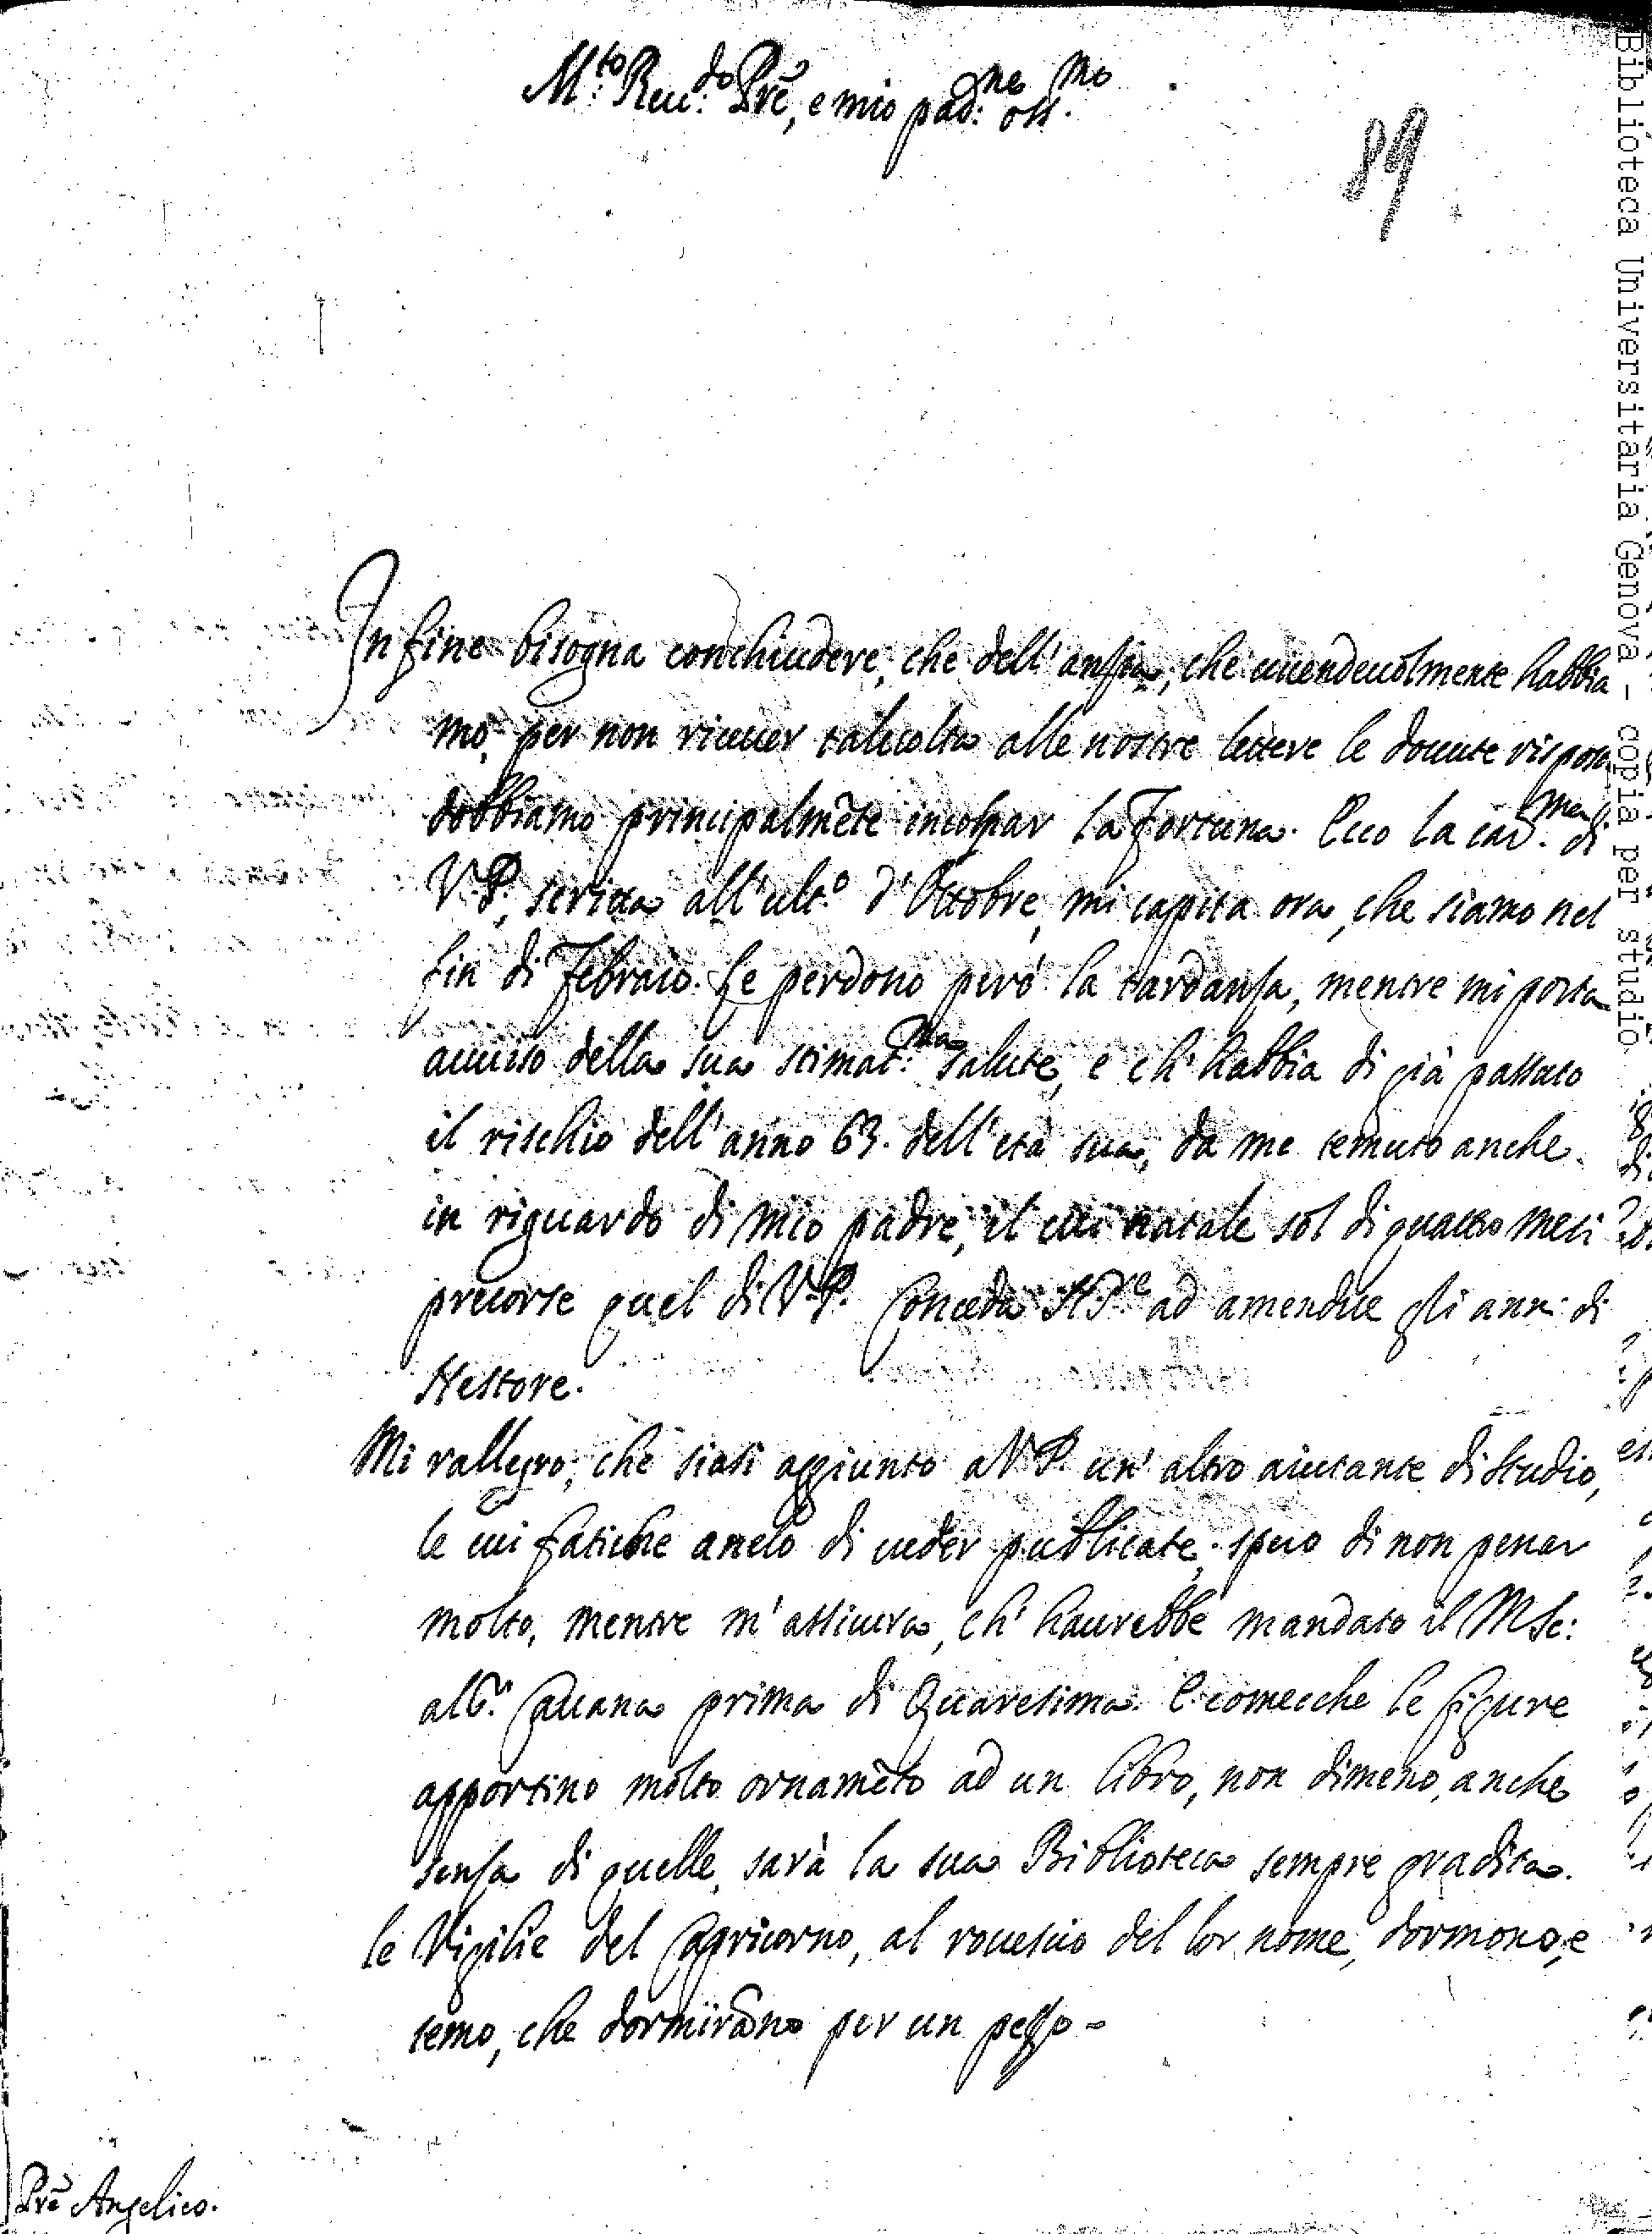 M.to Reu.do Prē, e mio pad.ne oss.mo
89
In fine bisogna conchiudere, che dell'ansia, che uicendeuolmente habbia
mo, per non riceuer taluolta alle nostre lettere le douute risposte
dobbiamo principalmēte incolpar la Fortuna. Ecco la car.ma di
V.P. scritta all'ult.o d'Ottobre, mi capita ora, che siamo nel
fin di Febraio. Le perdono però la tardansa, mentre mi porta
auuiso della sua stimat.ma salute, e ch'habbia di già passato
il rischio dell'anno 63. dell'età sua, da me temuto anche
in riguardo di mio padre, il cui natale sol di quattro mesi
precorse quel di V.P. Conceda N.S.re ad amendue gli anni di
Nestore.
Mi rallegro, che siasi aggiunto a V.P. un'altro aiutante di studio,
le cui fatiche anelo di ueder publicate; spero di non penar
molto, mentre m'assicura, ch'haurebbe mandato il MSc:
al S.r Cauana prima di Quaresima. E comecche le figure
apportino molto ornamēto ad un libro, non dimeno, anche
sensa di quelle, sarà la sua Biblioteca sempre gradita.
le Vigilie del Capricorno, al rouescio del lor nome, dormono, e
temo, che dormirāno per un pesso-
Prē Angelico.
Biblioteca Universitaria Genova - copia per studio